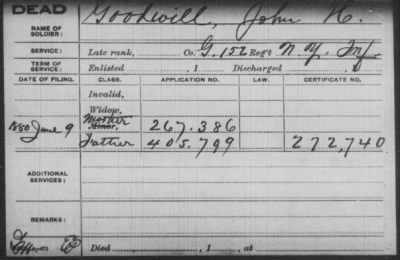 DEAD
NAME OF SOLDIER: Goodwill, John H.
SERVICE: Late rank, Co. G. 152 Reg't N.Y. Inf
TERM OF SERVICE: Enlisted , 1 Discharged , 1
DATE OF FILING. CLASS. APPLICATION NO. LAW. CERTIFICATE NO.
Invalid,
Widow,
1880 June 9 Mother Minor, 267.386
Father 405.799 272,740
ADDITIONAL SERVICES:
REMARKS:
Died , 1 , at